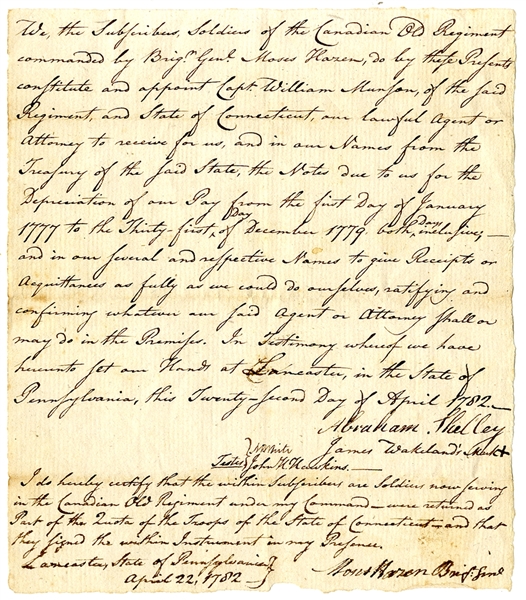 We, the Subscribers, Soldiers of the Canadian Old Regiment
commanded by Brigr. Genl. Moses Hazen, do by these Presents
constitute and appoint Capt. William Munson, of the said
Regiment, and State of Connecticut, our lawful Agent or
Attorney to receive for us, and in our Names from the
Treasury of the said State, the Notes due to us for the
Depreciation of our Pay from the first Day of January
1777 to the Thirty-first, Day of December 1779 both Days inclusive;—
and in our several and respective Names to give Receipts or
Acquittances as fully as we could do ourselves, ratifying and
confirming whatever our said Agent or Attorney shall or
may do in the Premises. In Testimony whereof we have
hereunto set our Hands at Lancaster, in the State of
Pennsylvania, this Twenty-second Day of April 1782—
Abraham Shelley
James Wakeland's Mark +
Testes } White
John H Hawkins.—
I do hereby certify that the within Subscribers are Soldiers now serving
in the Canadian Old Regiment under my Command— were returned as
Part of the Quota of the Troops of the State of Connecticut— and that
they signed the within Instrument in my Presence.
Lancaster, State of Pennsylvania }
April 22, 1782—
Moses Hazen Brig. Genl